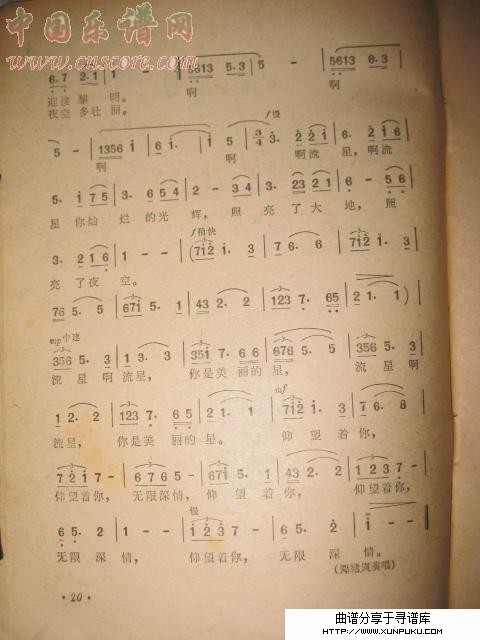 中国乐谱网
www.cnscore.com
6.7 2.1 | 1 - - | 5613 5.3 | 5 - | 5613 6.3 |
迎接黎明。 啊 啊
夜空多壮丽。
f慢
5 - | 1356 i | 6 i. | i 5 | 3/4 3. 2 2 1 | 6. 2 1 6 |
啊 啊 啊流星,啊流
5. 1 7 5 | 3. 6 5 4 | 2 - 3 4 | 3. 23 2 1 | 6 - 5 6 |
星你灿烂的光辉,照亮了大地,照
f稍快
3. 2 1 6 | 1 - - | (712 i. 3 | 7 6. 6 | 712 i. 3 |
亮了夜空。
76 5. 5 | 671 5. 1 | 43 2. 2 | 123 7. 65 | 2 1. 1) |
mp中速
356 5. 3 | 1 3. 3 | 351 7. 6 6 | 676 5. 5 | 356 5. 3 |
流星啊流星, 你是美丽的星, 流星啊
mf
1 2. 2 | 123 7. 6 5 | 2 1. 1 | 712 i. 3 | 7 6. 6 |
流星, 你是美丽的星。 仰望着你,
7 2 1 7 - | 6 7 6 5 - | 671 5. 1 | 43 2. 2 | 1 2 3 7 - |
仰望着你, 无限深情, 仰望着你, 仰望着你,
慢
6 5. 2 | 1 - - | 1 2 3 7 - | 6 5. 2 | i - - ‖
无限深情, 仰望着你, 无限深情。
(郑绪岚演唱)
·20·
曲谱分享于寻谱库
www.xunpuku.com